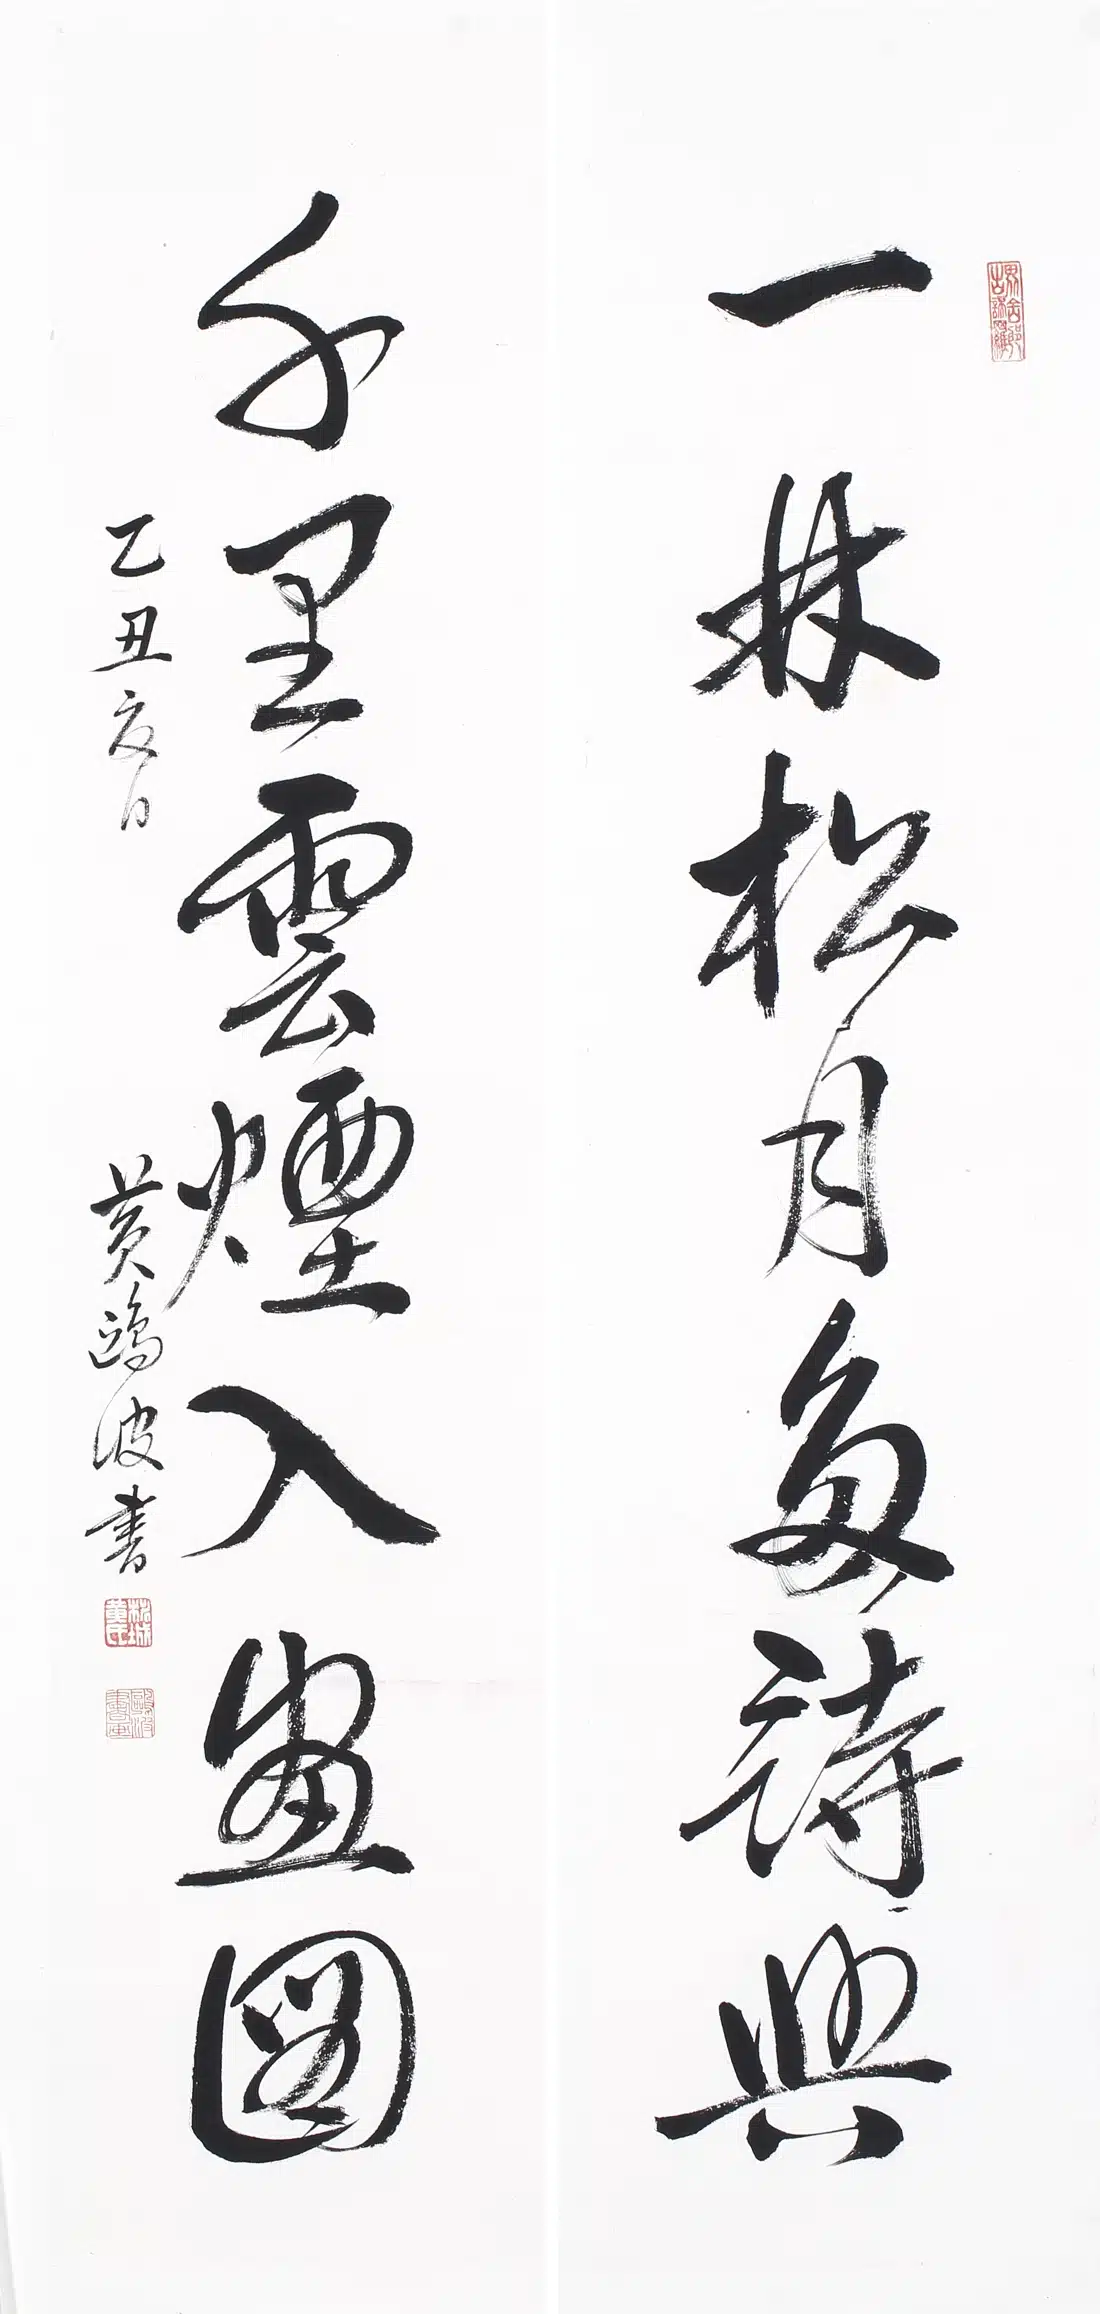 一林松月多詩興
千里雲煙入畫圖
乙丑夏日
黃鷗波書